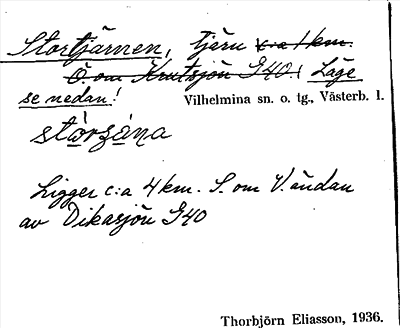 Stortjärnen, tjärn c:a 1 km.
Ö. om Krutsjön G40! Läge
se nedan!
Vilhelmina sn. o. tg., Västerb. l.
Ligger c:a 4 km. S. om V. ändan
av Dikasjön G40
Thorbjörn Eliasson, 1936.